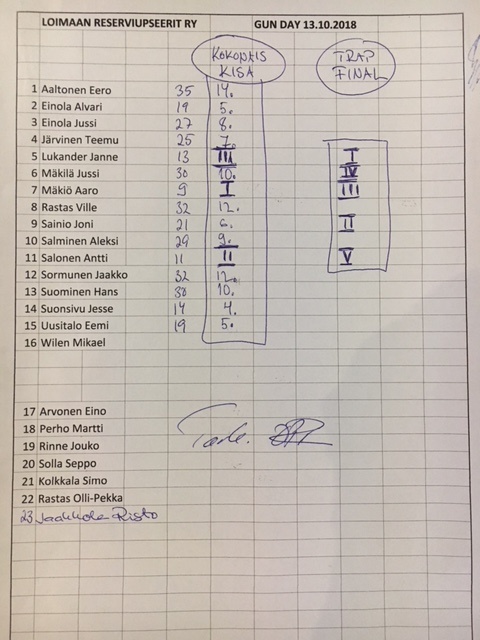 LOIMAAN RESERVIUPSEERIT RY GUN DAY 13.10.2018
KOKONAIS TRAP
KISA FINAL
1 Aaltonen Eero 35 14.
2 Einola Alvari 19 5.
3 Einola Jussi 27 8.
4 Järvinen Teemu 25 7.
5 Lukander Janne 13 III I
6 Mäkilä Jussi 30 10. IV
7 Mäkiö Aaro 9 I III
8 Rastas Ville 32 12.
9 Sainio Joni 21 6. II
10 Salminen Aleksi 29 9.
11 Salonen Antti 11 II V
12 Sormunen Jaakko 32 12.
13 Suominen Hans 30 10.
14 Suonsivu Jesse 14 4.
15 Uusitalo Eemi 19 5.
16 Wilen Mikael
17 Arvonen Eino
18 Perho Martti
19 Rinne Jouko
20 Solla Seppo
21 Kolkkala Simo
22 Rastas Olli-Pekka
23 Jaakkola Risto